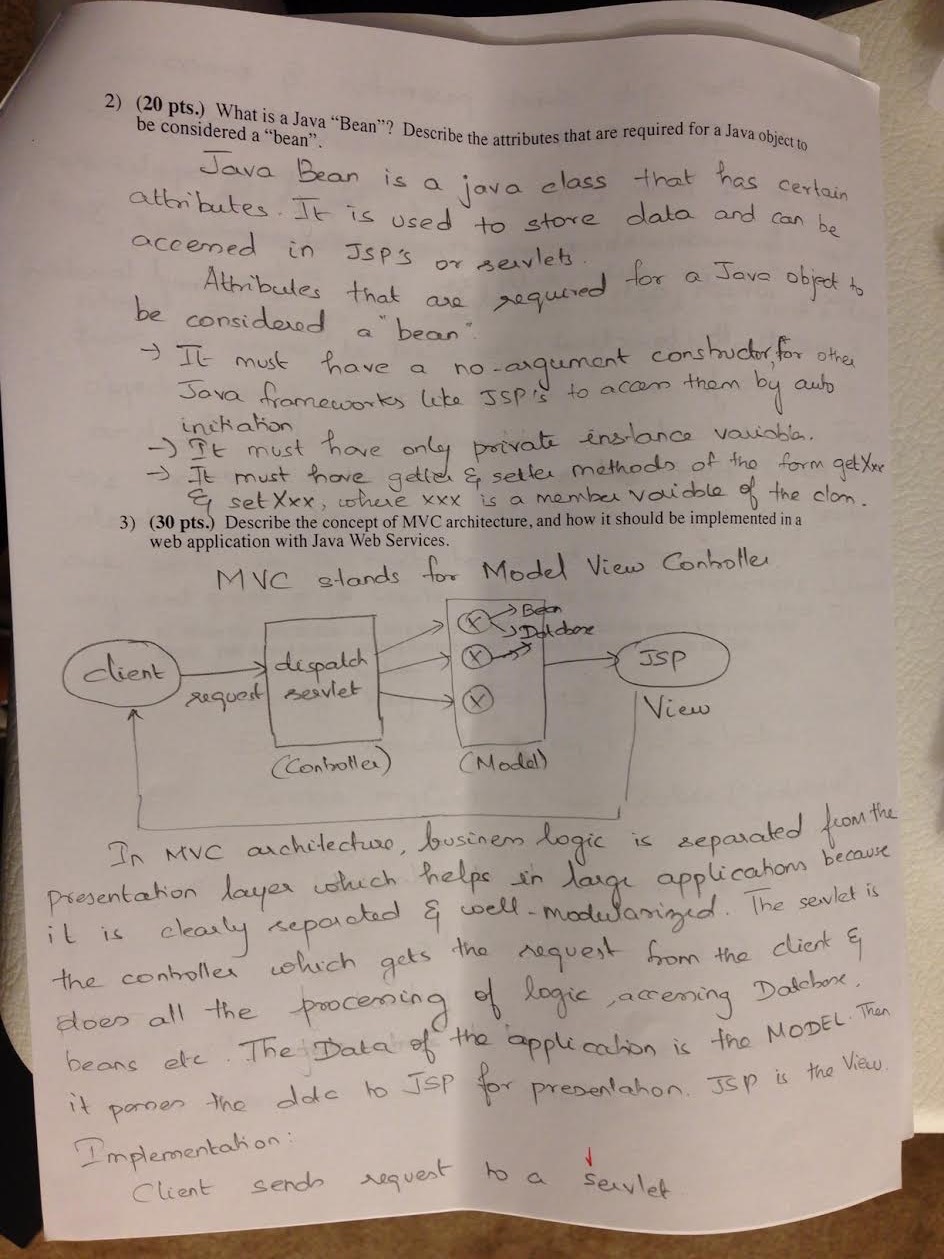 2) (20 pts.) What is a Java “Bean”? Describe the attributes that are required for a Java object to
be considered a “bean”.
Java Bean is a java class that has certain
attributes. It is used to store data and can be
accessed in JSP's or servlets.
Attributes that are required for a Java object to
be considered a "bean".
→ It must have a no-argument constructor, for other
Java frameworks like JSP's to access them by auto
initiation
→ It must have only private instance variables.
→ It must have getter & setter methods of the form getXxx
& setXxx, where xxx is a member variable of the class.
3) (30 pts.) Describe the concept of MVC architecture, and how it should be implemented in a
web application with Java Web Services.
MVC stands for Model View Controller
client
request
dispatch
servlet
(Controller)
X
Bean
Database
X
X
(Model)
JSP
View
In MVC architecture, business logic is separated from the
presentation layer which helps in large applications because
it is clearly separated & well-modularized. The servlet is
the controller which gets the request from the client &
does all the processing of logic, accessing Database,
beans etc. The Data of the application is the MODEL. Then
it passes the data to JSP for presentation. JSP is the View.
Implementation:
Client sends request to a servlet